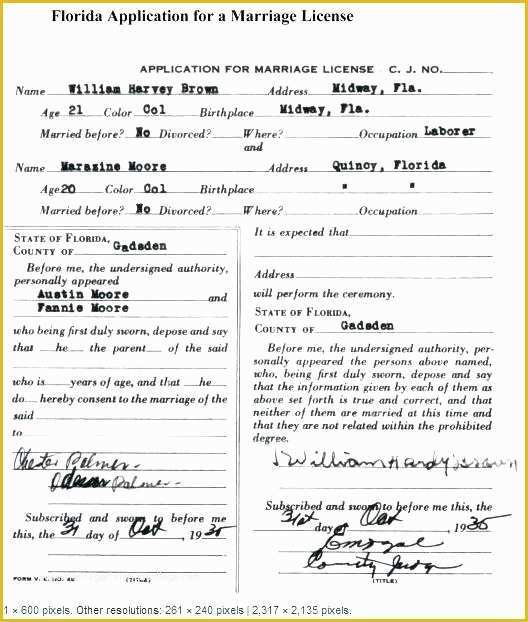 Florida Application for a Marriage License
APPLICATION FOR MARRIAGE LICENSE C. J. NO.
Name William Harvey Brown Address Midway, Fla.
Age 21 Color Col Birthplace Midway, Fla.
Married before? No Divorced? Where? Occupation Laborer
and
Name Marazine Moore Address Quincy, Florida
Age 20 Color Col Birthplace " "
Married before? No Divorced? Where? Occupation
STATE OF FLORIDA,
COUNTY OF Gadsden
Before me, the undersigned authority,
personally appeared
Austin Moore and
Fannie Moore
who being first duly sworn, depose and say
that he the parent of the said
who is years of age, and that he
do hereby consent to the marriage of the
said
to
Chester Palmer
Palmer
Subscribed and sworn to before me
this, the 31 day of Oct, 1935
FORM V. E. NO. (TITLE)
It is expected that
Address
will perform the ceremony.
STATE OF FLORIDA,
COUNTY OF Gadsden
Before me, the undersigned authority, per-
sonally appeared the persons above named,
who, being first duly sworn, depose and say
that the information given by each of them as
above set forth is true and correct, and that
neither of them are married at this time and
that they are not related within the prohibited
degree.
William Hardy Brown
Subscribed and sworn to before me this, the
31st day of Oct, 1935
County Judge
(TITLE)
1 × 600 pixels. Other resolutions: 261 × 240 pixels | 2,317 × 2,135 pixels.